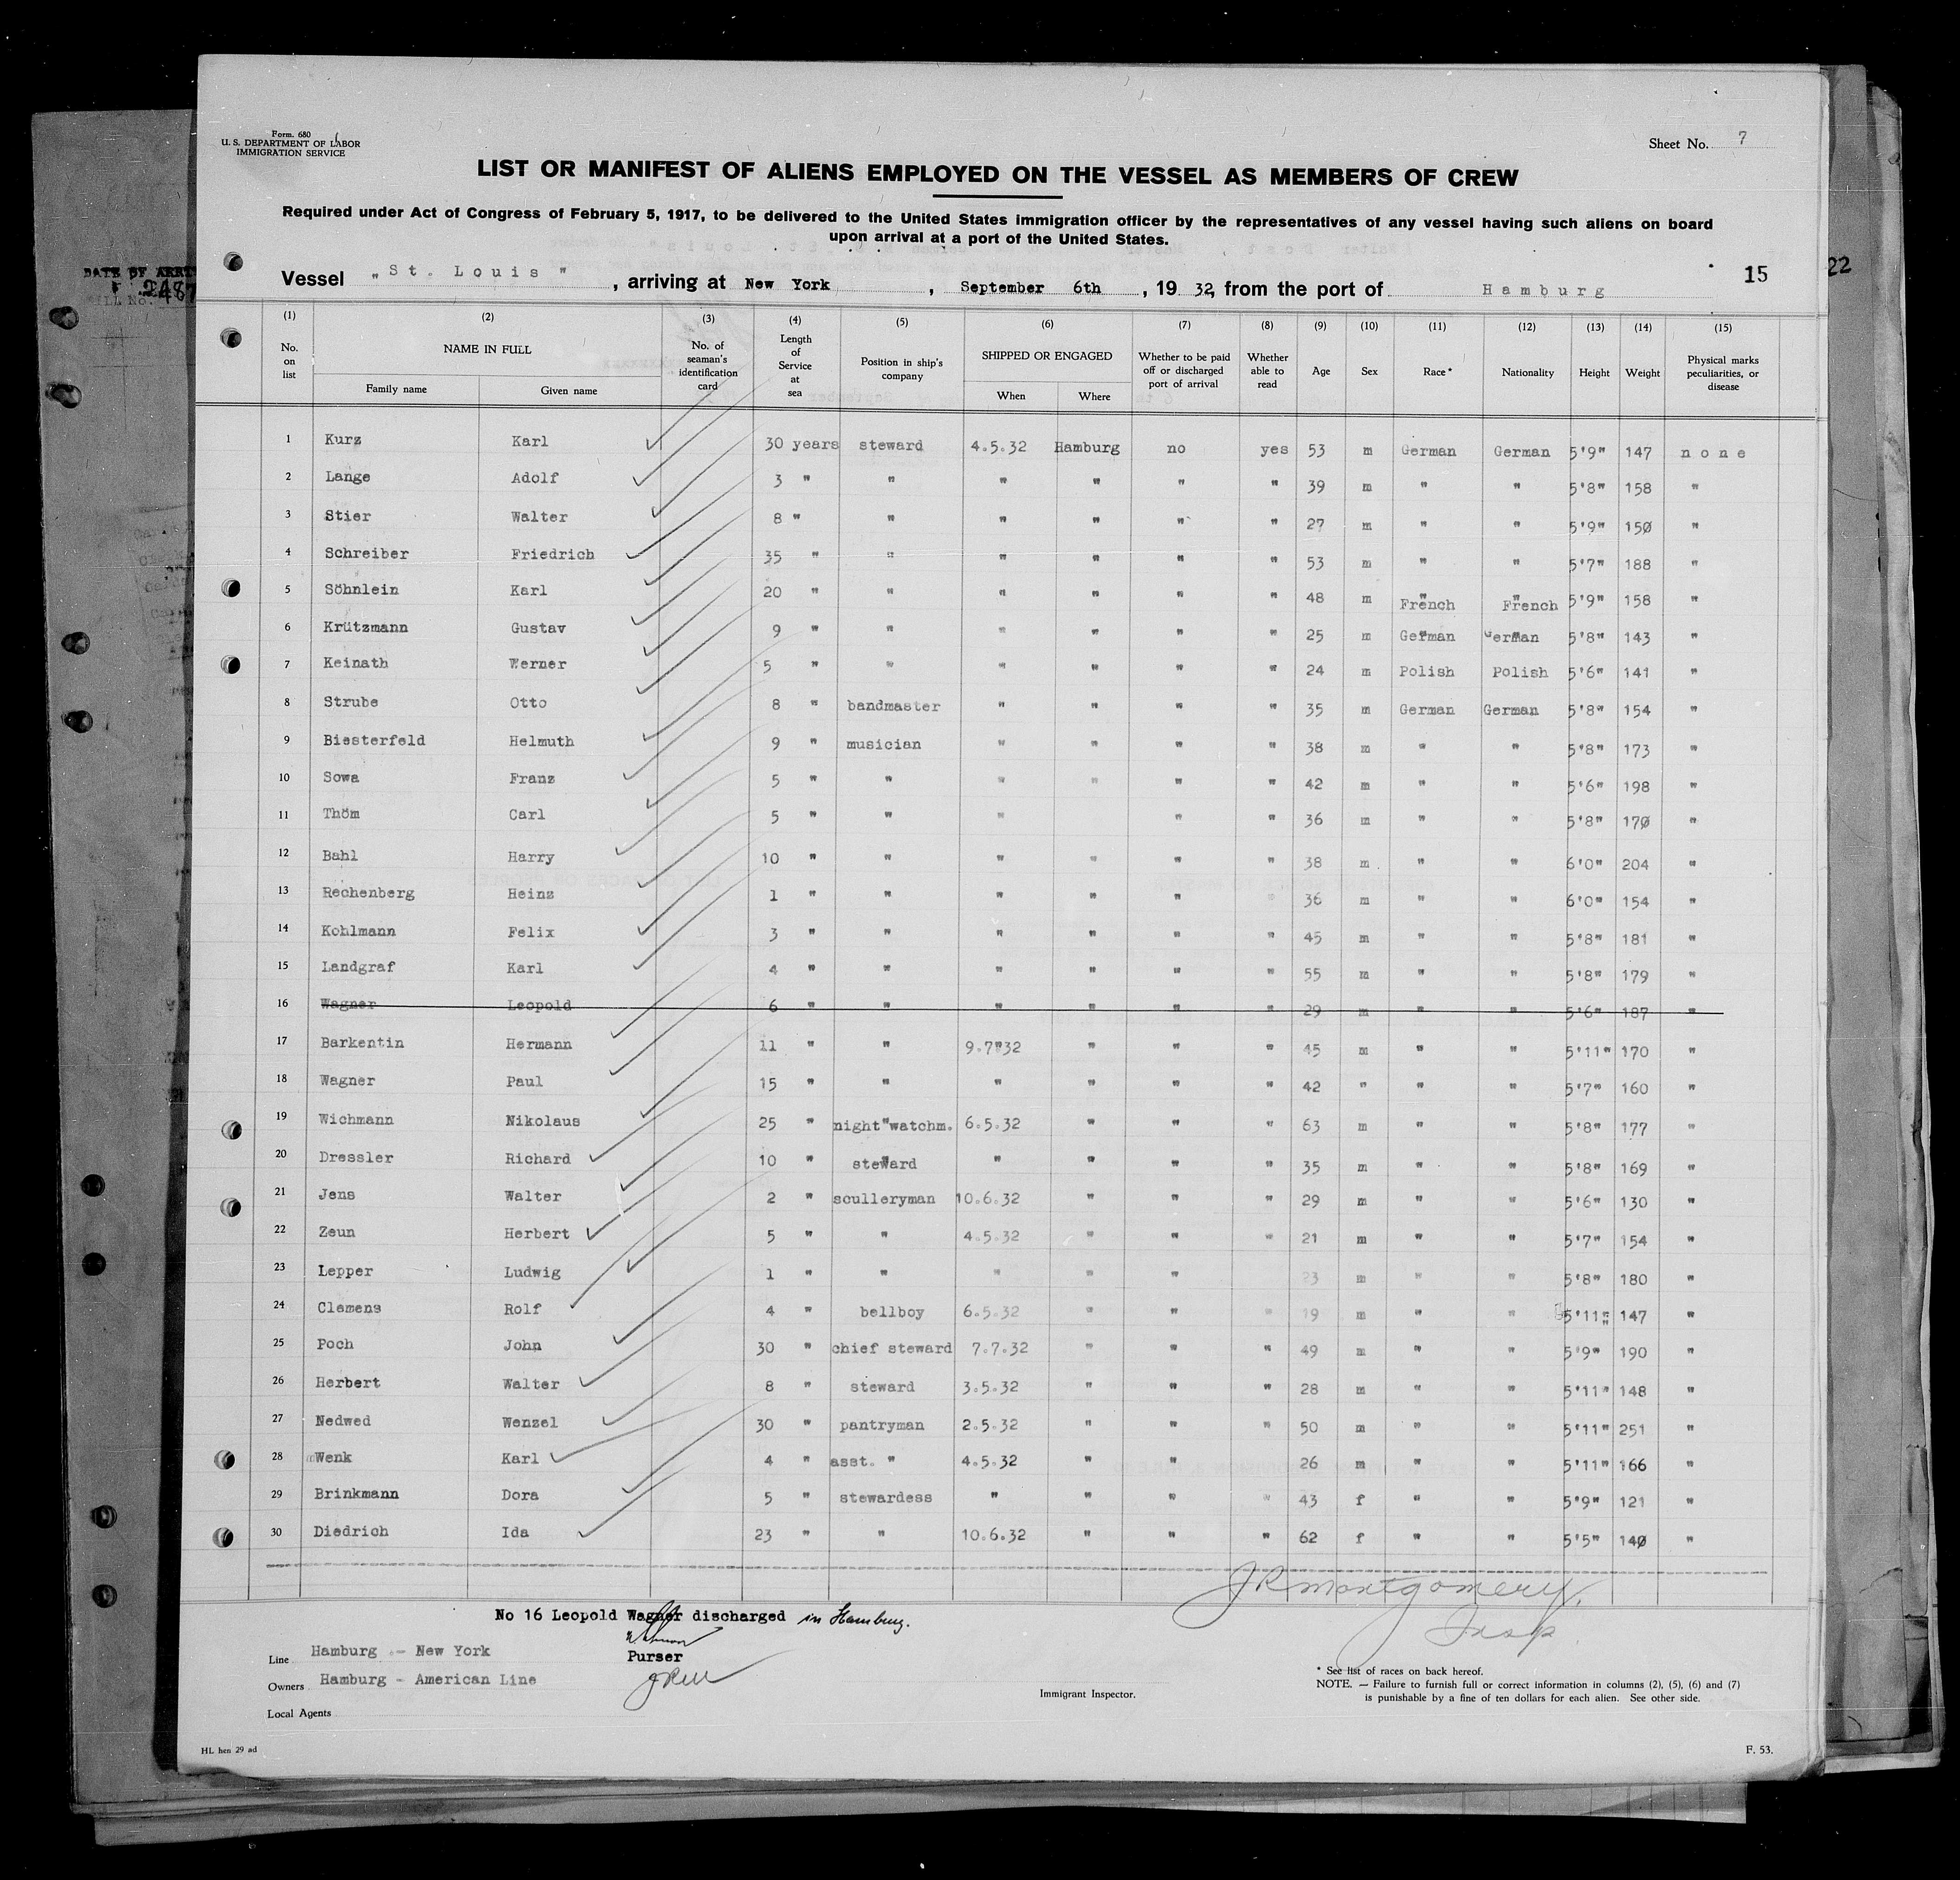 Form. 680
U. S. DEPARTMENT OF LABOR
IMMIGRATION SERVICE
Sheet No. 7
LIST OR MANIFEST OF ALIENS EMPLOYED ON THE VESSEL AS MEMBERS OF CREW
Required under Act of Congress of February 5, 1917, to be delivered to the United States immigration officer by the representatives of any vessel having such aliens on board
upon arrival at a port of the United States.
Vessel "St. Louis", arriving at New York, September 6th, 19 32, from the port of Hamburg 15
22
2487
(1) (2) (3) (4) (5) (6) (7) (8) (9) (10) (11) (12) (13) (14) (15)
No. on list NAME IN FULL Family name Given name No. of seaman's identification card Length of Service at sea Position in ship's company SHIPPED OR ENGAGED When Where Whether to be paid off or discharged port of arrival Whether able to read Age Sex Race * Nationality Height Weight Physical marks peculiarities, or disease
1 Kurz Karl 30 years steward 4.5.32 Hamburg no yes 53 m German German 5'9" 147 none
2 Lange Adolf 3 " " " " " " 39 m " " 5'8" 158 "
3 Stier Walter 8 " " " " " " 27 m " " 5'9" 150 "
4 Schreiber Friedrich 35 " " " " " " 53 m " " 5'7" 188 "
5 Söhnlein Karl 20 " " " " " " 48 m French French 5'9" 158 "
6 Krützmann Gustav 9 " " " " " " 25 m German German 5'8" 143 "
7 Keinath Werner 5 " " " " " " 24 m Polish Polish 5'6" 141 "
8 Strube Otto 8 " bandmaster " " " " 35 m German German 5'8" 154 "
9 Biesterfeld Helmuth 9 " musician " " " " 38 m " " 5'8" 173 "
10 Sowa Franz 5 " " " " " " 42 m " " 5'6" 198 "
11 Thöm Carl 5 " " " " " 36 m " " 5'8" 170 "
12 Bahl Harry 10 " " " " " " 38 m " " 6'0" 204 "
13 Rechenberg Heinz 1 " " " " " " 36 m " " 6'0" 154 "
14 Kohlmann Felix 3 " " " " " " 45 m " " 5'8" 181 "
15 Landgraf Karl 4 " " " " " " 55 m " " 5'8" 179 "
16 Wagner Leopold 6 " " " " " " 29 m " " 5'6" 187 "
17 Barkentin Hermann 11 " " 9.7.32 " " " 45 m " " 5'11" 170 "
18 Wagner Paul 15 " " " " " " 42 " " " 5'7" 160 "
19 Wichmann Nikolaus 25 " night watchm. 6.5.32 " " " 63 m " " 5'8" 177 "
20 Dressler Richard 10 " steward " " " " 35 m " " 5'8" 169 "
21 Jens Walter 2 " sculleryman 10.6.32 " " " 29 m " " 5'6" 130 "
22 Zeun Herbert 5 " " 4.5.32 " " " 21 m " " 5'7" 154 "
23 Lepper Ludwig 1 " " " " " 23 m " " 5'8" 180 "
24 Clemens Rolf 4 " bellboy 6.5.32 " " " 19 m " " 5'11" 147 "
25 Poch John 30 " chief steward 7.7.32 " " " 49 m " " 5'9" 190 "
26 Herbert Walter 8 " steward 3.5.32 " " " 28 m " " 5'11" 148 "
27 Nedwed Wenzel 30 " pantryman 2.5.32 " " " 50 m " " 5'11" 251 "
28 Wenk Karl 4 " asst. " 4.5.32 " " " 26 m " " 5'11" 166 "
29 Brinkmann Dora 5 " stewardess " " " " 43 f " " 5'9" 121 "
30 Diedrich Ida 23 " " 10.6.32 " " " 62 f " " 5'5" 140 "
JR Montgomery.
Insp.
No 16 Leopold Wagner discharged in Hamburg.
Purser
JRM
Line Hamburg - New York
Owners Hamburg - American Line
Local Agents
Immigrant Inspector.
* See list of races on back hereof.
NOTE. — Failure to furnish full or correct information in columns (2), (5), (6) and (7)
is punishable by a fine of ten dollars for each alien. See other side.
HL hen 29 ad
F. 53.